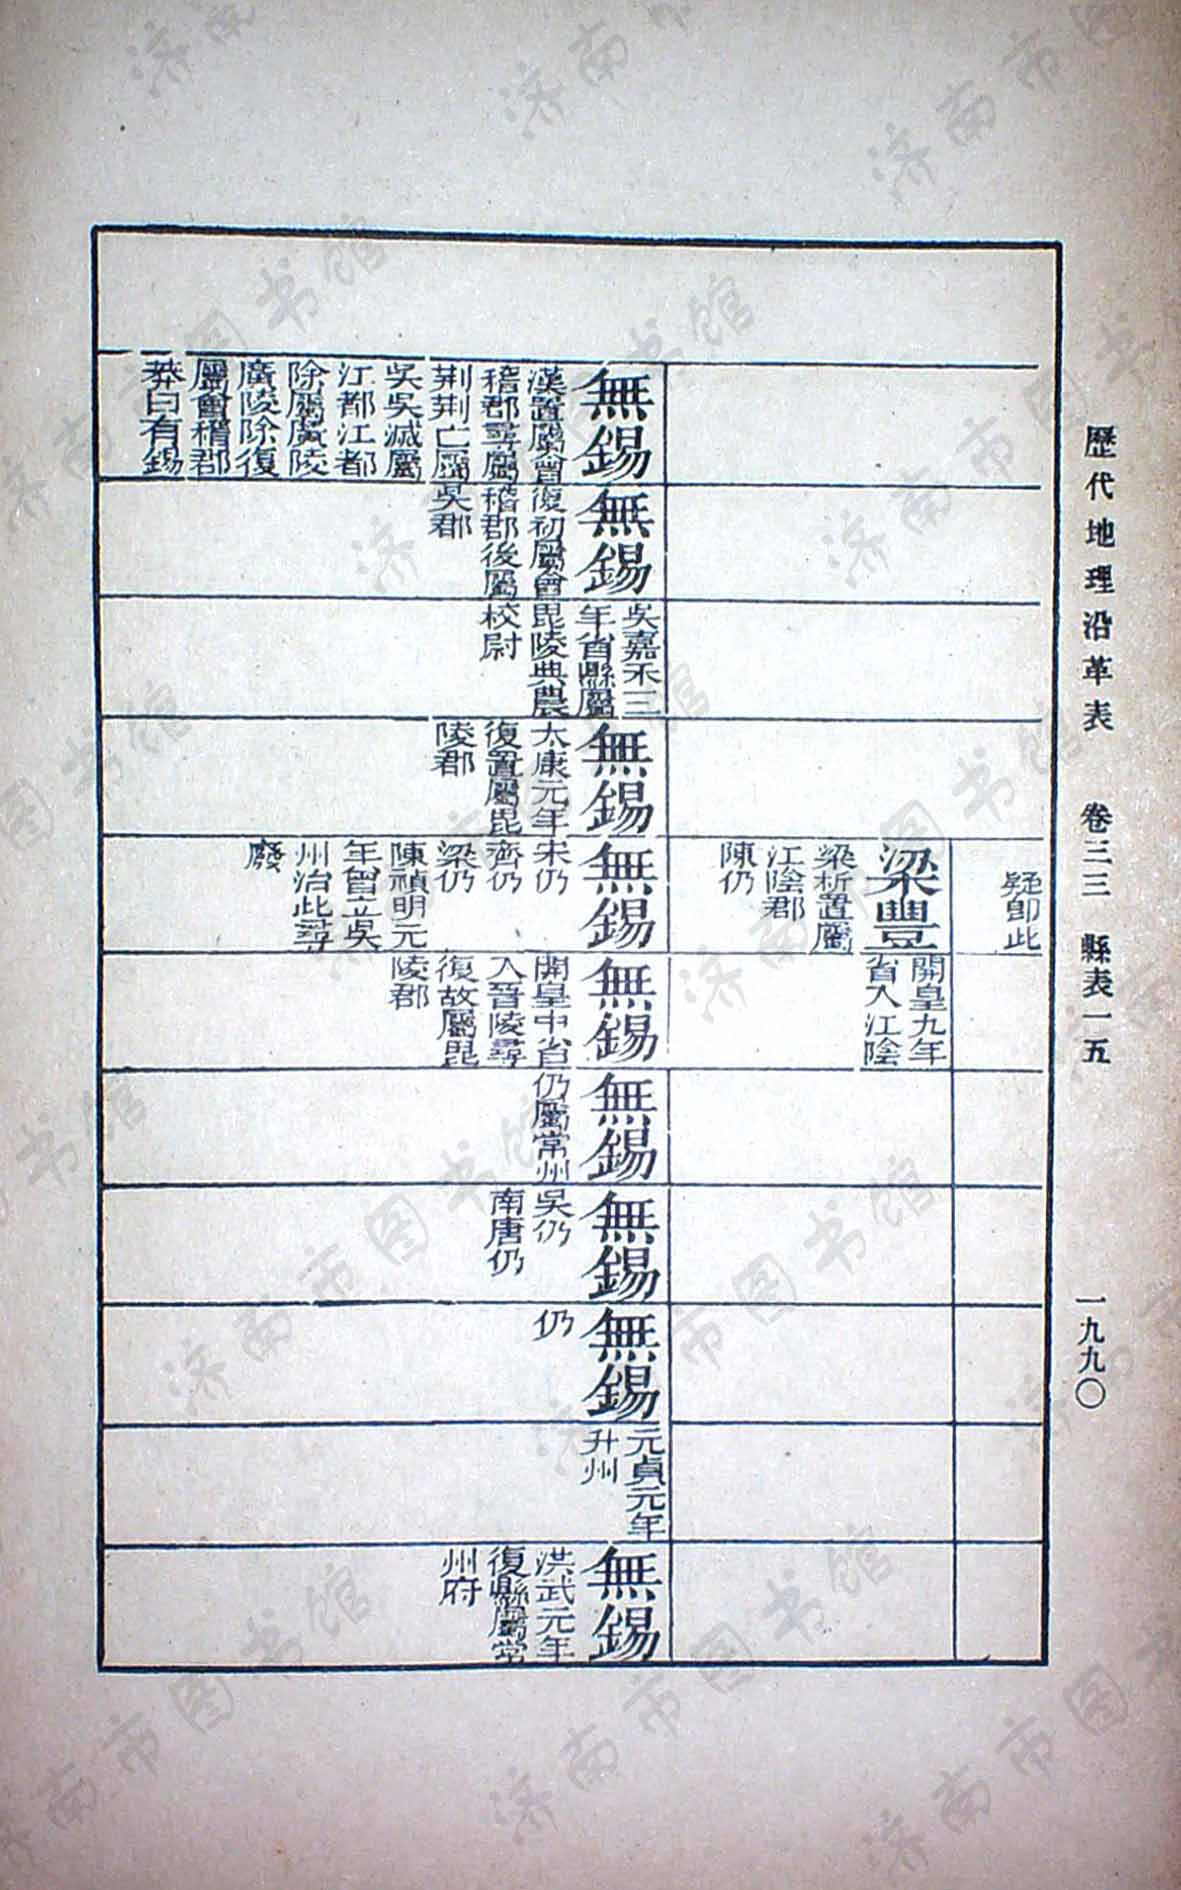 歷代地理沿革表 卷三三 縣表一五 一九九〇
疑卽此
梁豐
梁析置屬
江陰郡
陳仍
開皇九年
省入江陰
無錫
漢置屬會
稽郡尋屬
荆荆亡屬
吳吳滅屬
江都江都
除屬廣陵
廣陵除復
屬會稽郡
莽曰有錫
無錫
復初屬會
稽郡後屬
吳郡
吳嘉禾三
年省縣屬
毘陵典農
校尉
無錫
太康元年
復置屬毘
陵郡
無錫
宋仍
齊仍
梁仍
陳禎明元
年曾立吳
州治此尋
廢
無錫
開皇中省
入晉陵尋
復故屬毘
陵郡
無錫
仍屬常州
無錫
吳仍
南唐仍
無錫
仍
元貞元年
升州
無錫
洪武元年
復縣屬常
州府
济南市图书馆